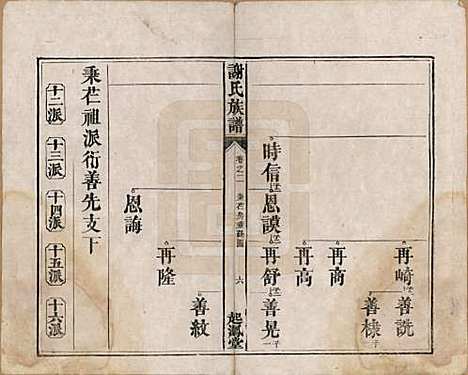 再崎
善說
善樣
再商
再高
時信
恩謨
再舒
善晃
謝氏族譜
卷之二
六
起鳳堂
再隆
善紋
恩誨
乘芒祖派衍善先支下
十二派
十三派
十四派
十五派
十六派